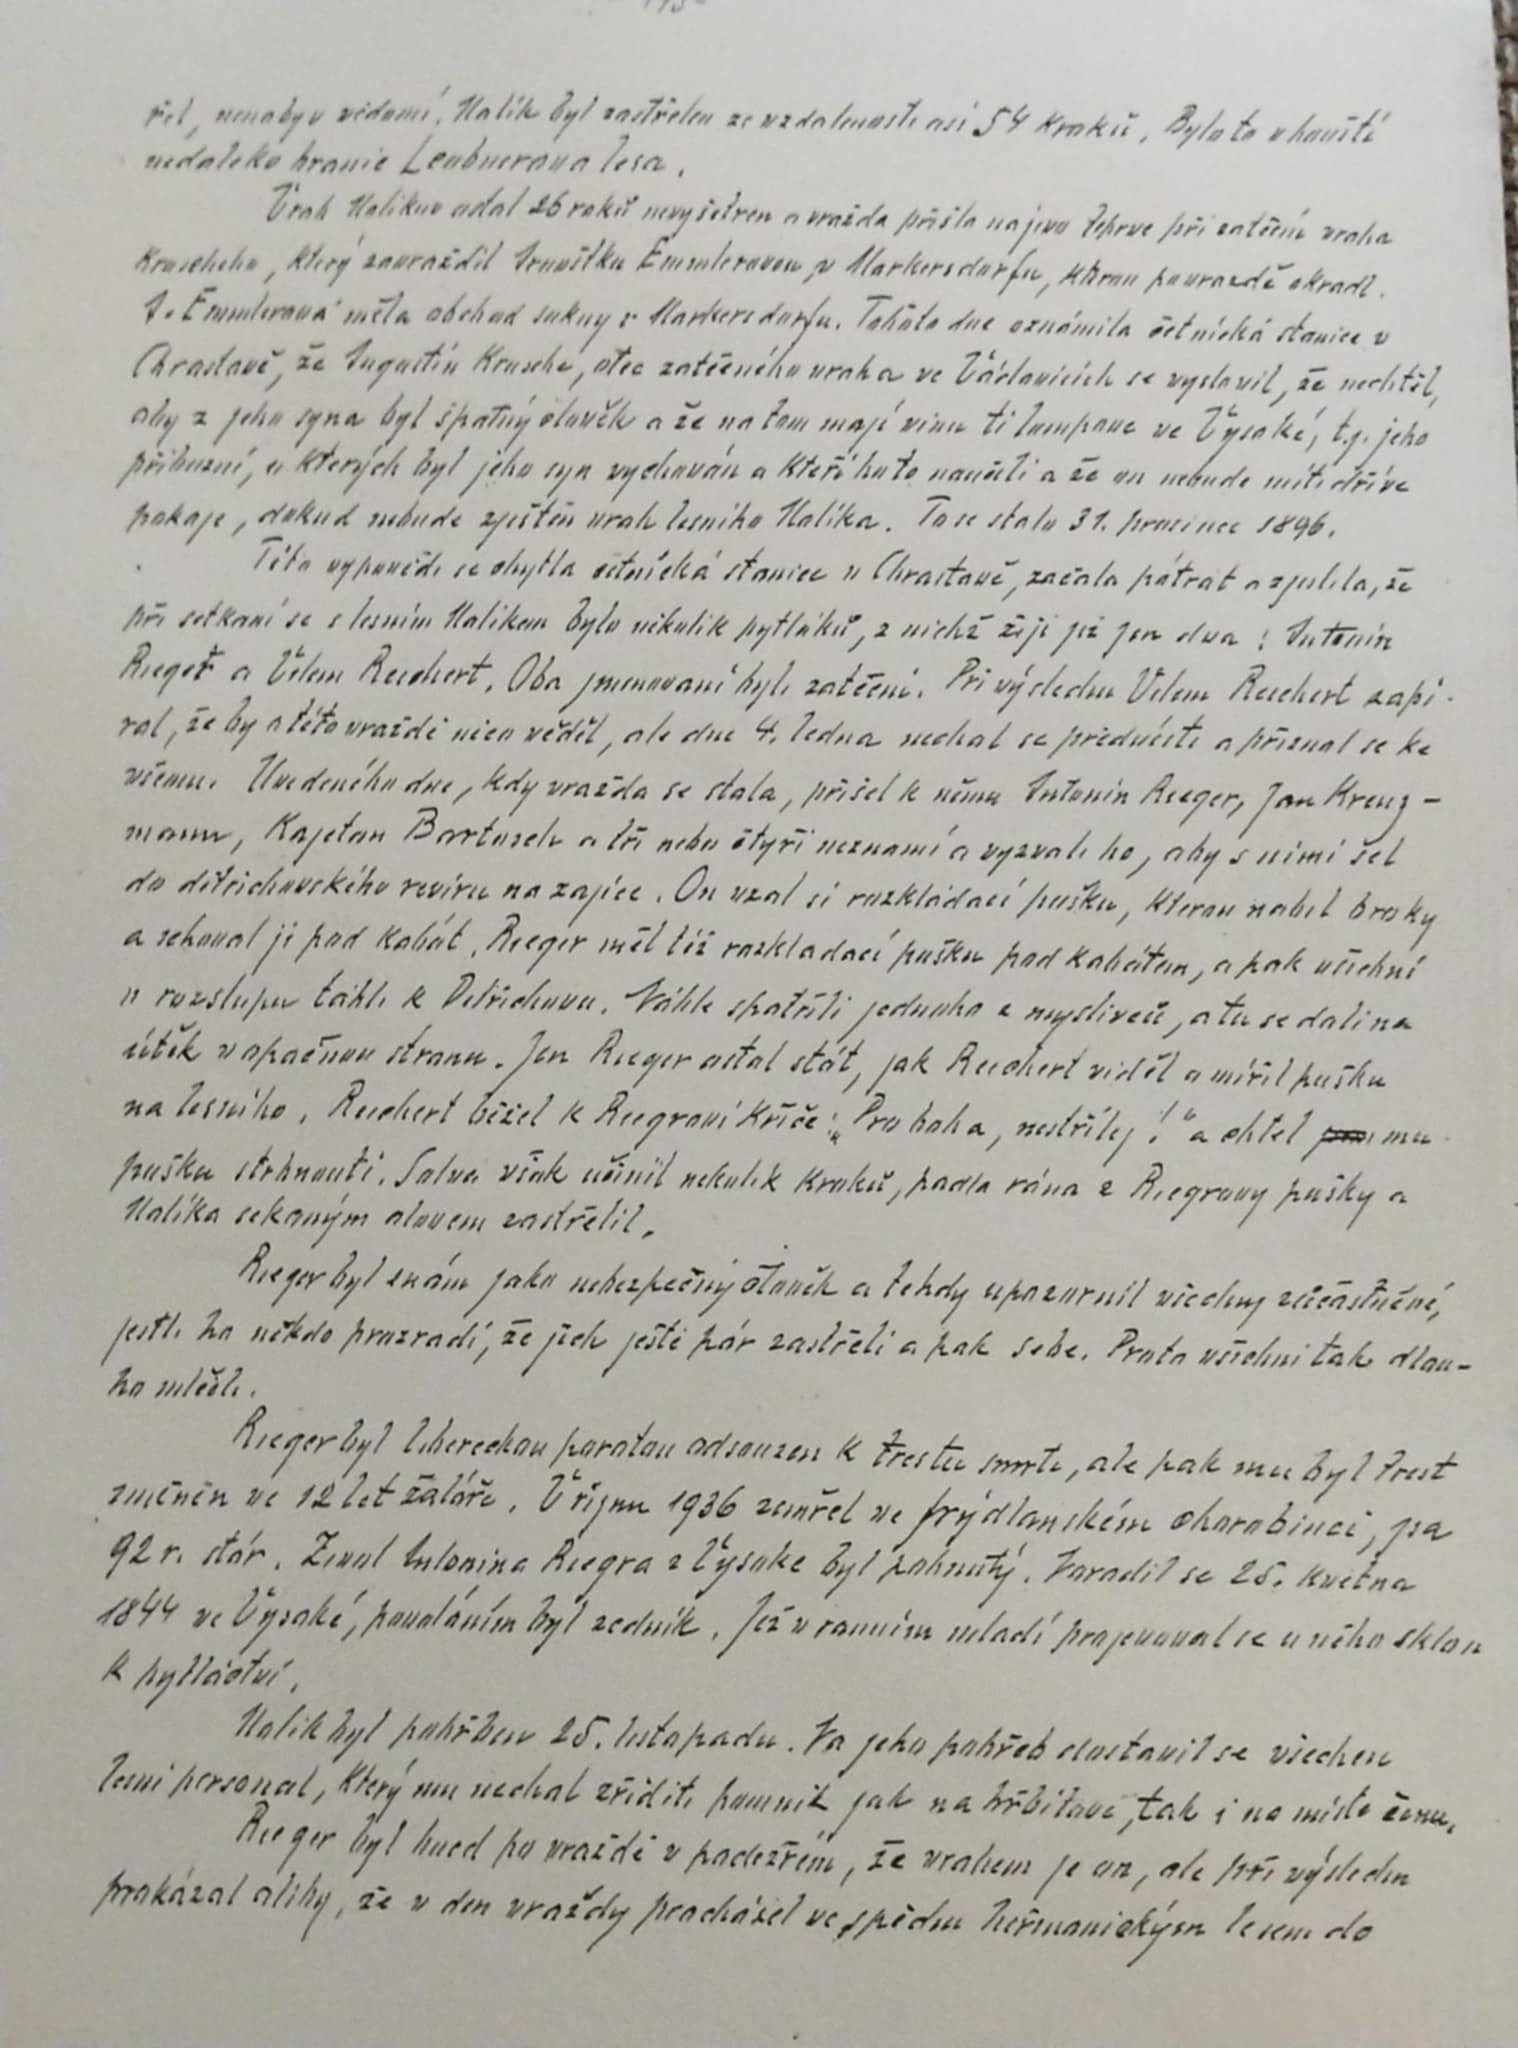 řel, nenabyv vědomí. Halík byl zastřelen ze vzdálenosti asi 54 kroků. Bylo to v houští
nedaleko hranic Leubnerova lesa.
Vrah Halíkův ostal 26 roků nevyšetřen a vražda přišla na jevo teprve při zatčení vraha
Kruscheho, který zavraždil Emmlerovou v Markersdorfu, kterou po vraždě okradl.
Emmlerová měla obchod sukny v Markersdorfu. Tohoto dne oznámila četnická stanice v
Chrastavě, že Augustin Krusche, otec zatčeného vraha ve Václavicích se vyslovil, že nechtěl,
aby z jeho syna byl špatný člověk a že na tom mají vinu ti lumpove ve Vysoké, t.j. jeho
příbuzní, u kterých byl jeho syn vychován a kteří ho to naučili a že on nebude míti dříve
pokoje, dokud nebude zjištěn vrah lesního Halíka. To se stalo 31. prosince 1896.
Této výpovědi se chytla četnická stanice v Chrastavě, začala pátrat a zjistila, že
při setkání se s lesním Halíkem bylo několik pytláků, z nichž žijí již jen dva: Antonín
Rieger a Vilem Reichert. Oba jmenovaní byli zatčeni. Při výslechu Vilem Reichert zapí-
ral, že by o této vraždě nico věděl, ale dne 4. ledna nechal se předvésti a přiznal se ke
všemu. Uvedeného dne, kdy vražda se stala, přišel k němu Antonín Rieger, Jan Kreuz-
mann, Kajetan Bartusch a tři nebo čtyři neznamí a vyzvali ho, aby s nimi šel
do dětřichovského revíru na zajíce. On vzal si rozkládací pušku, kterou nabil broky
a schoval ji pod kabát. Rieger měl též rozkladací pušku pod kabátem, a pak všichni
v rozstupu táhli k Dětřichovu. Náhle spatřili jednoho z myslivců, a tu se dali na
útěk v opačnou stranu. Jen Rieger ostal stát, jak Reichert viděl a mířil pušku
na lesního. Reichert běžel k Riegrovi křiče: „Pro boha, nestřílej!“ a chtěl mu
pušku strhnouti. Sotva však učinil nekolik kroků, padla rána z Riegrovy pušky a
Halíka sekaným olovem zastřelil.
Rieger byl znám jako nebezpečný člověk a tehdy upozornil všechny zúčástněné,
jestli ho někdo prozradí, že jich ještě pár zastřelí a pak sebe. Proto všichni tak dlou-
ho mlčeli.
Rieger byl libereckou porotou odsouzen k trestu smrti, ale pak mu byl trest
změněn ve 12 let žaláře. V říjnu 1936 zemřel ve frýdlanském chorobinci, jsa
92 r. stár. Život Antonina Riegra z Vysoke byl pohnutý. Narodil se 25. května
1844 ve Vysoké, povoláním byl zedník. Již v ranním mladí projevoval se u něho sklon
k pytláctví.
Halík byl pohřben 25. listopadu. Na jeho pohřeb dostavil se všechen
lesní personal, který mu nechal zřídit pomník jak na hřbitově, tak i na místě činu.
Rieger byl hned po vraždě v podezření, že vrahem je on, ale při výslechu
prokázal aliby, že v den vraždy procházel ve spěchu heřmanickým lesem do